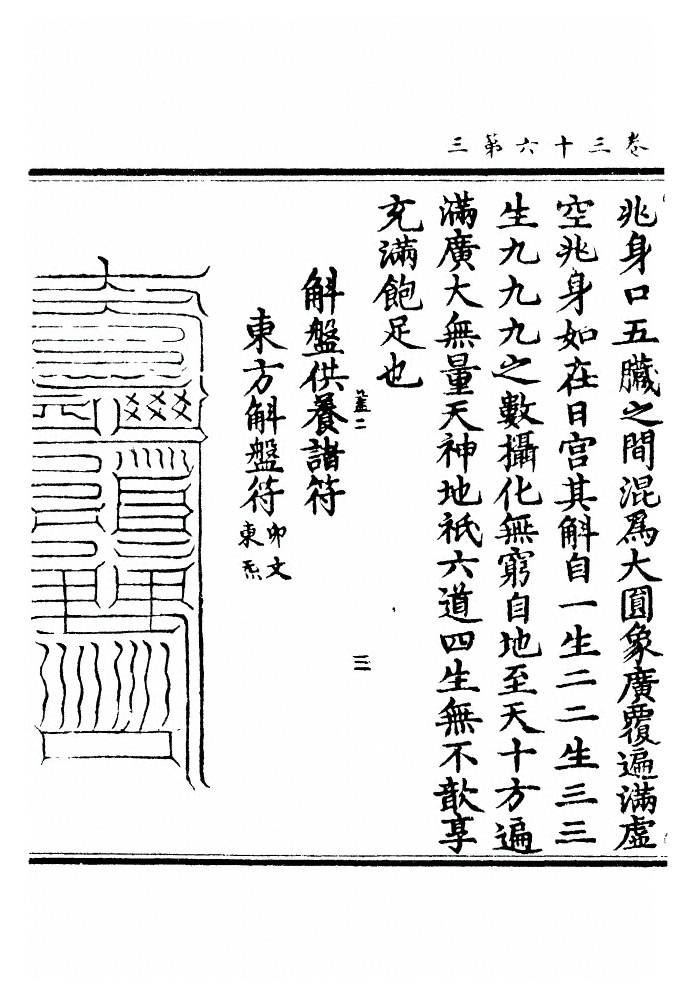 卷三十六第三
兆身口五臟之間混爲大圓象廣覆遍滿虛
空兆身如在日宫其斛自一生二二生三三
生九九九之數攝化無窮自地至天十方遍
滿廣大無量天神地祇六道四生無不歆享
充滿飽足也
三
斛盤供養諸符
東方斛盤符
卯文
東炁